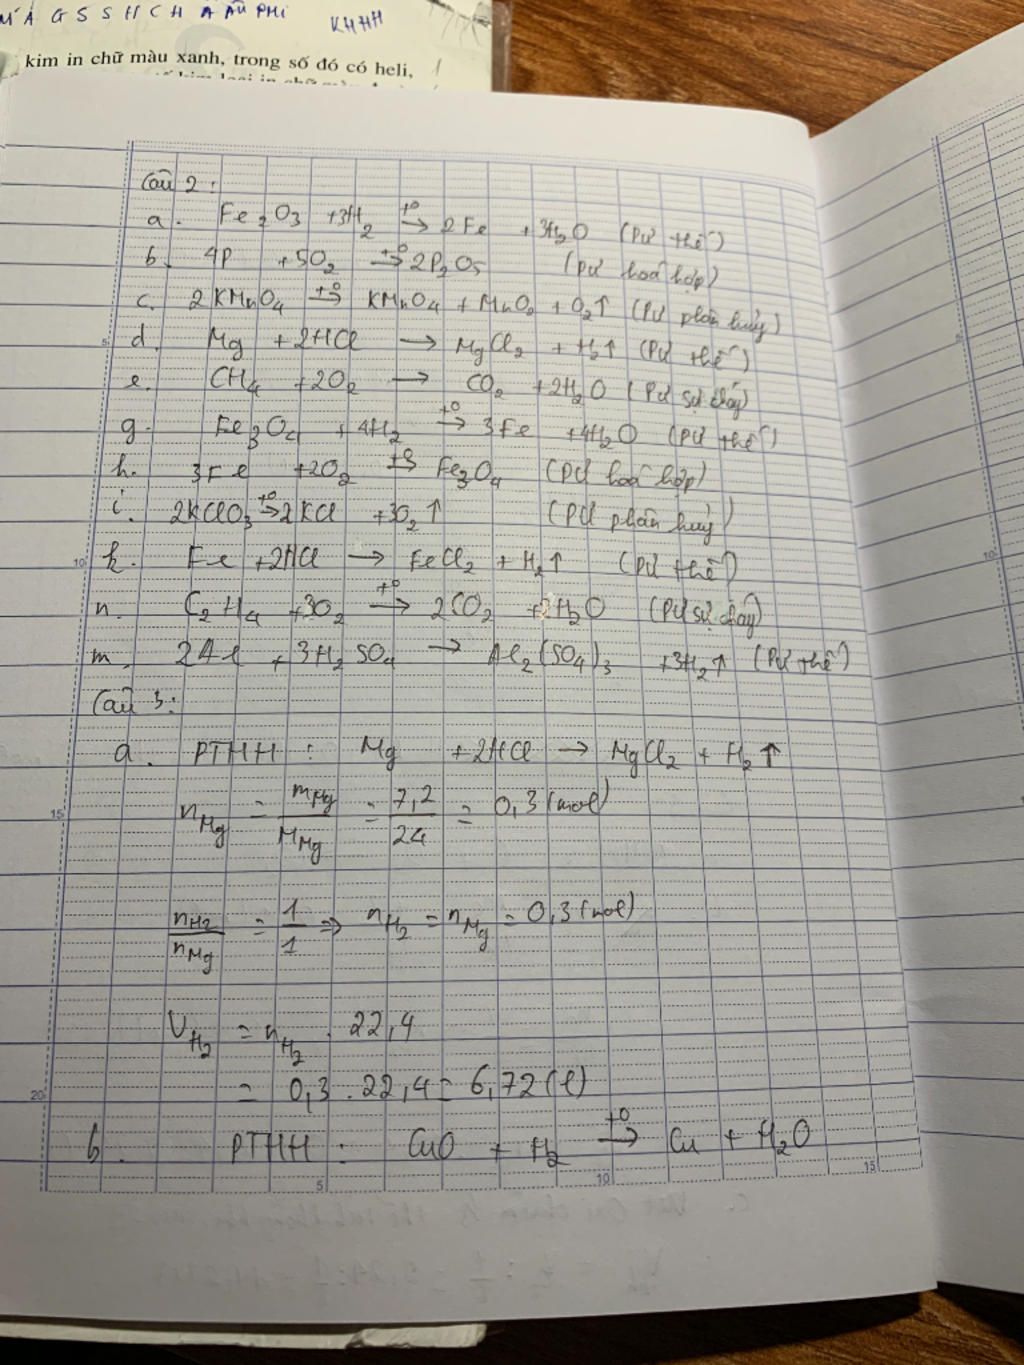 M A G S S H C H A ÂU PHI
KHHH
kim in chữ màu xanh, trong số đó có heli,
Câu 2:
a. Fe₂O₃ +3H₂ →(t°) 2Fe +3H₂O (Pư thế)
b. 4P +5O₂ →(t°) 2P₂O₅ (Pư hoá hợp)
c. 2KMnO₄ →(t°) KMnO₄ + MnO₂ + O₂↑ (Pư phân huỷ)
d. Mg +2HCl → MgCl₂ + H₂↑ (Pư thế)
e. CH₄ +2O₂ → CO₂ +2H₂O (Pư sự cháy)
g. Fe₃O₄ +4H₂ →(t°) 3Fe +4H₂O (Pư thế)
h. 3Fe +2O₂ →(t°) Fe₃O₄ (Pư hoá hợp)
i. 2KClO₃ →(t°) 2KCl +3O₂↑ (Pư phân huỷ)
k. Fe +2HCl → FeCl₂ + H₂↑ (Pư thế)
n. C₂H₄ +3O₂ →(t°) 2CO₂ +2H₂O (Pư sự cháy)
m. 2Al +3H₂SO₄ → Al₂(SO₄)₃ +3H₂↑ (Pư thế)
Câu 3:
a. PTHH : Mg +2HCl → MgCl₂ + H₂↑
n_Mg = m_Mg / M_Mg = 7,2 / 24 = 0,3 (mol)
n_H₂ / n_Mg = 1 / 1 ⇒ n_H₂ = n_Mg = 0,3 (mol)
V_H₂ = n_H₂ . 22,4
= 0,3 . 22,4 = 6,72 (l)
b. PTHH : CuO + H₂ →(t°) Cu + H₂O
5 10 15